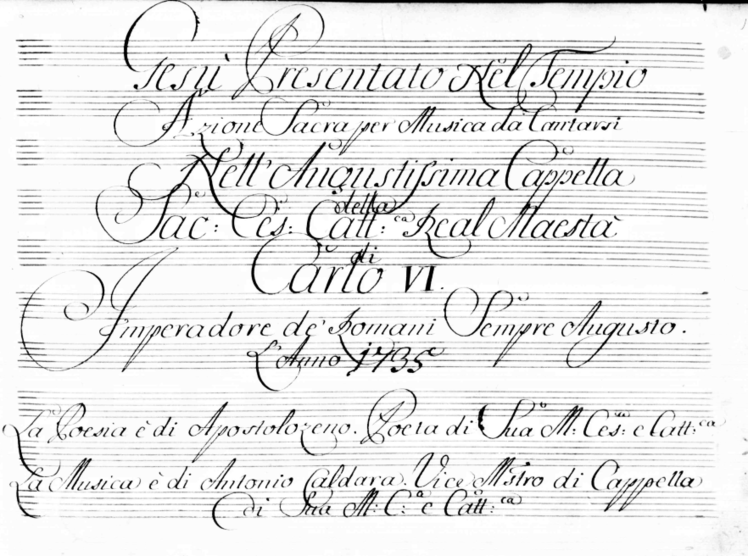 Gesù Presentato Nel Tempio
Azione Sacra per Musica da Cantarsi
Nell' Augustissima Cappella
della
Sac: Ces: Catt:ca Real Maestà
di
Carlo VI.
Imperadore de' Romani Sempre Augusto.
L'Anno 1735
La Poesia è di Apostolo zeno. Poeta di Sua M: Ces: e Catt:ca
La Musica è di Antonio Caldara. Vice M'stro di Cappella
di Sua M: C:a e Catt:ca